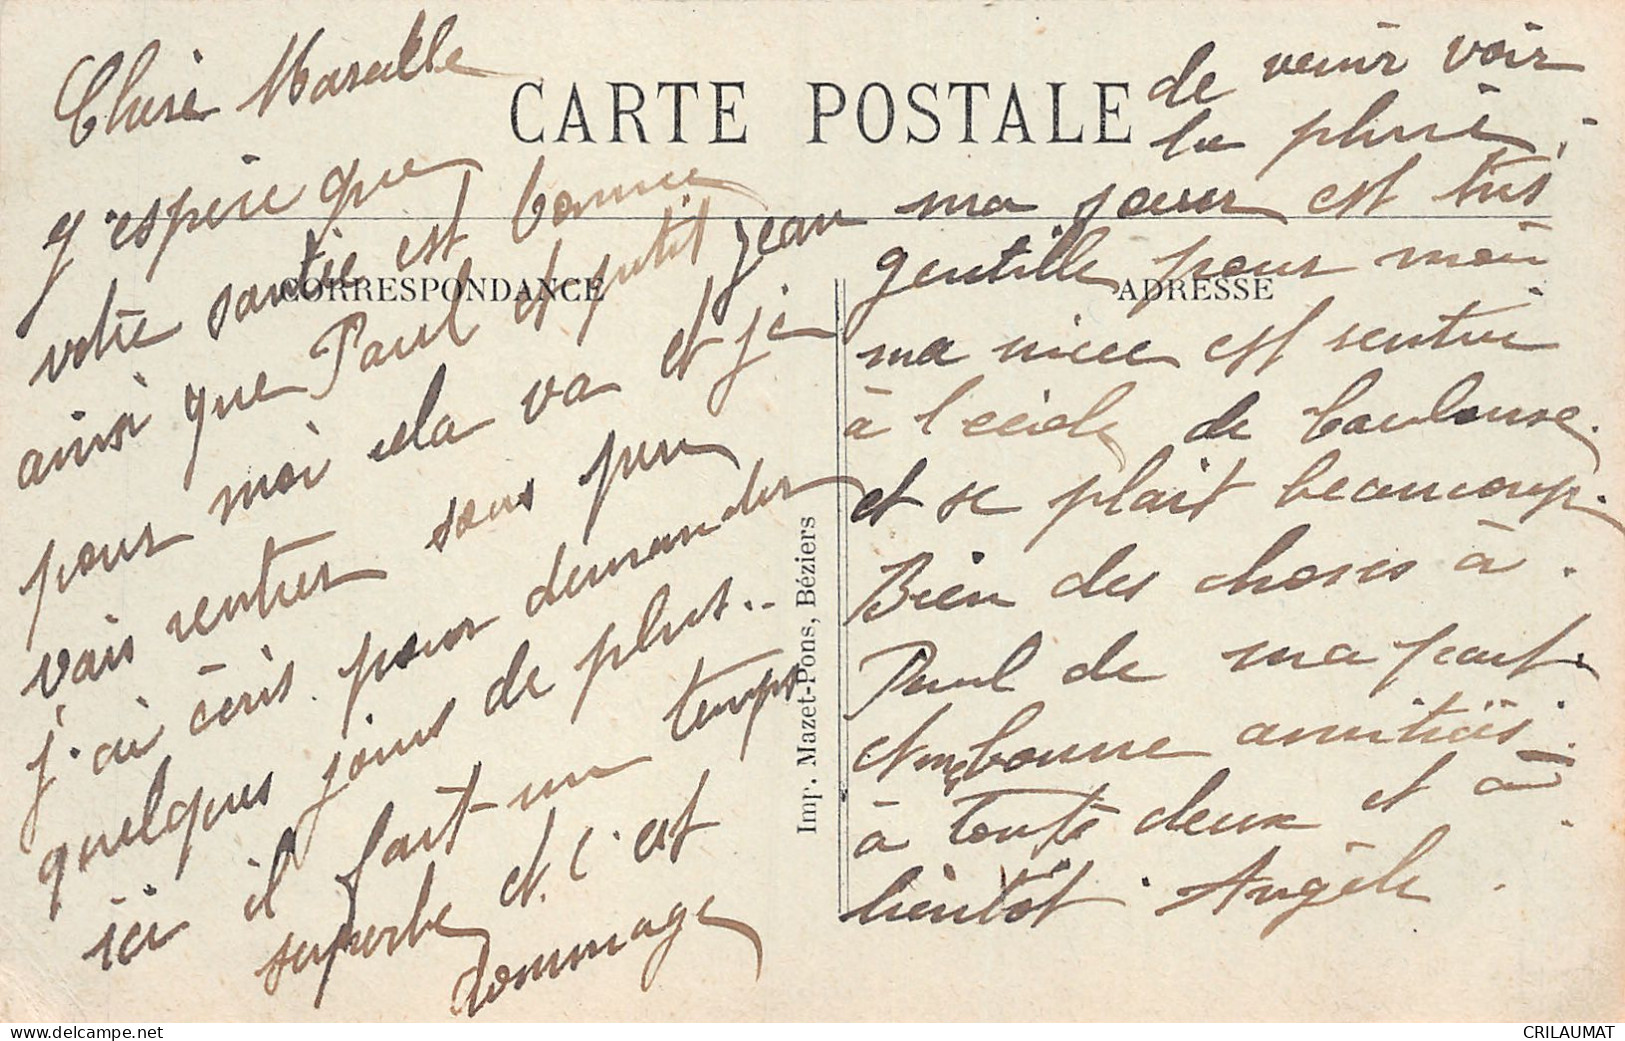 CARTE POSTALE
CORRESPONDANCE
ADRESSE
Imp. Mazet-Pons, Béziers
Chère Marcelle
J'espère que
votre santée est bonne
ainsi que Paul et petit Jean
pour moi cela va et je
vais rentrer sous peu
j'ai écris pour demander
quelques jours de plus..
ici il fait un temps
superbe et c'est
dommage
de venir voir
la pluie,
ma soeur est très
gentille pour moi
ma nièce est rentrée
à l'école de Toulouse.
et se plait beaucoup.
Bien des choses à
Paul de ma part.
et bonne amitiés
à toute deux et à
bientôt. Angèle.
CRILAUMAT